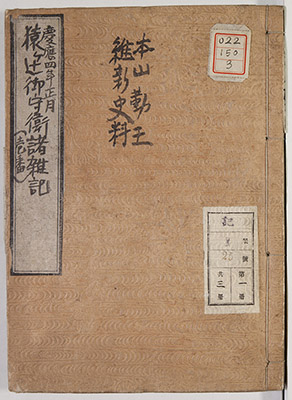 慶應四年正月
猿ヶ辻御守衛諸雑記
(壱番)
本山勤王
維新史料
022
150
3
記
第一冊
共三冊